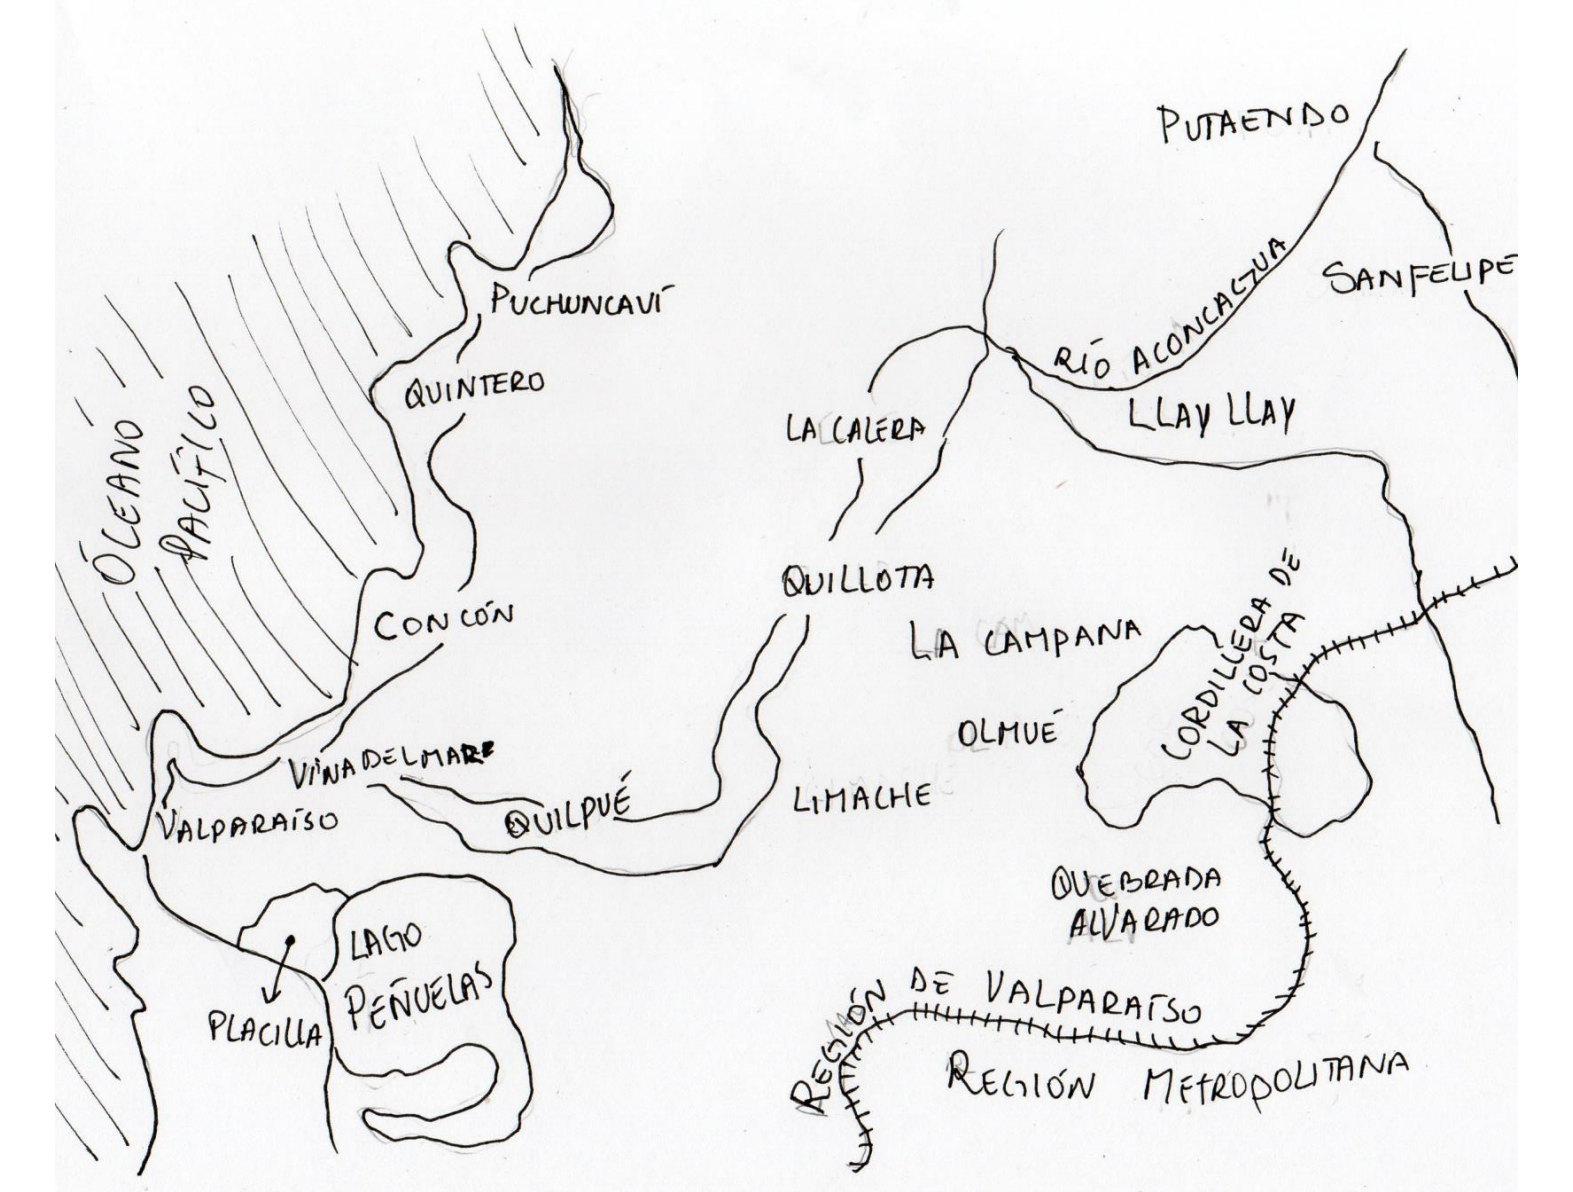 PUTAENDO
SAN FELIPE
PUCHUNCAVÍ
RÍO ACONCACUA
QUINTERO
LLAY LLAY
LA CALERA
ÓCEANO
PACÍFICO
QUILLOTA
CONCÓN
LA CAMPANA
CORDILLERA DE
LA COSTA
OLMUÉ
VIÑA DEL MAR
QUILPUÉ
LIMACHE
VALPARAÍSO
QUEBRADA
ALVARADO
LAGO
PEÑUELAS
PLACILLA
REGIÓN DE VALPARAÍSO
REGIÓN METROPOLITANA